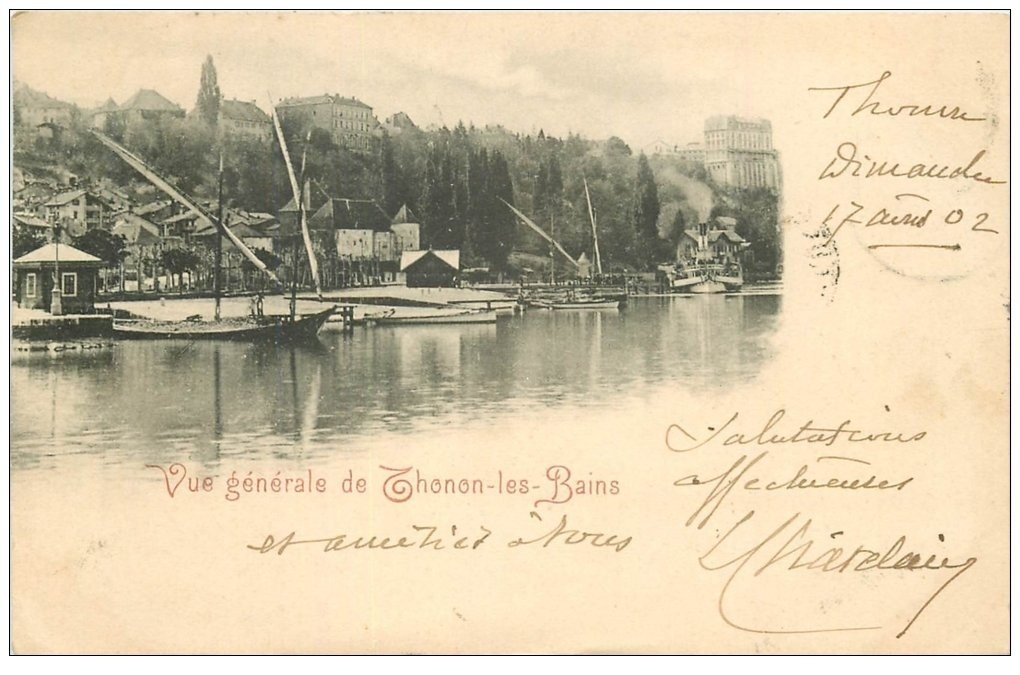 Thonon
Dimanche
17 août 02
Vue générale de Thonon-les-Bains
Salutations
affectueuses
et amitiés à Tous
Chardain